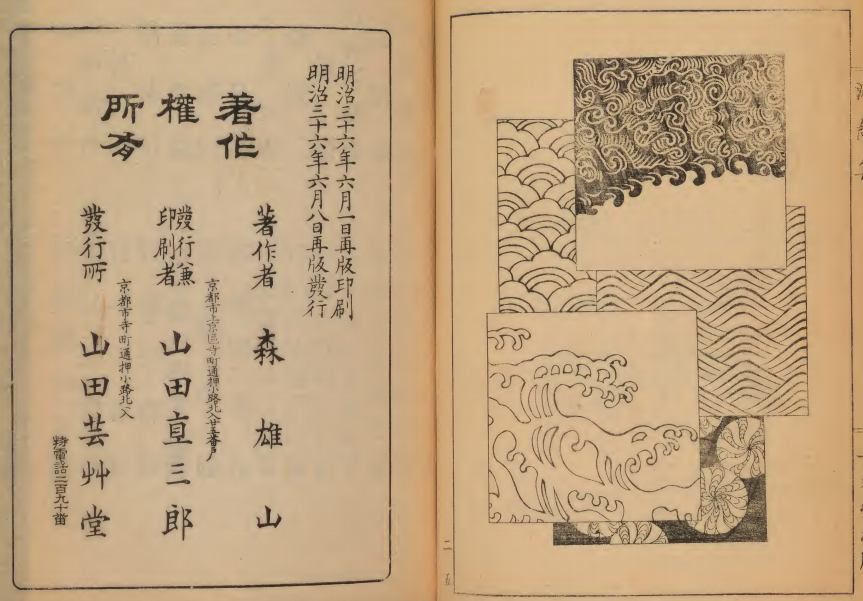 明治三十六年六月一日再版印刷
明治三十六年六月八日再版發行
著作
權
所有
著作者 森雄山
京都市上京區寺町通押小路北入廿五番戶
發行兼
印刷者 山田直三郎
京都市寺町通押小路北入
發行所 山田芸艸堂
特電話二百九十番
二五